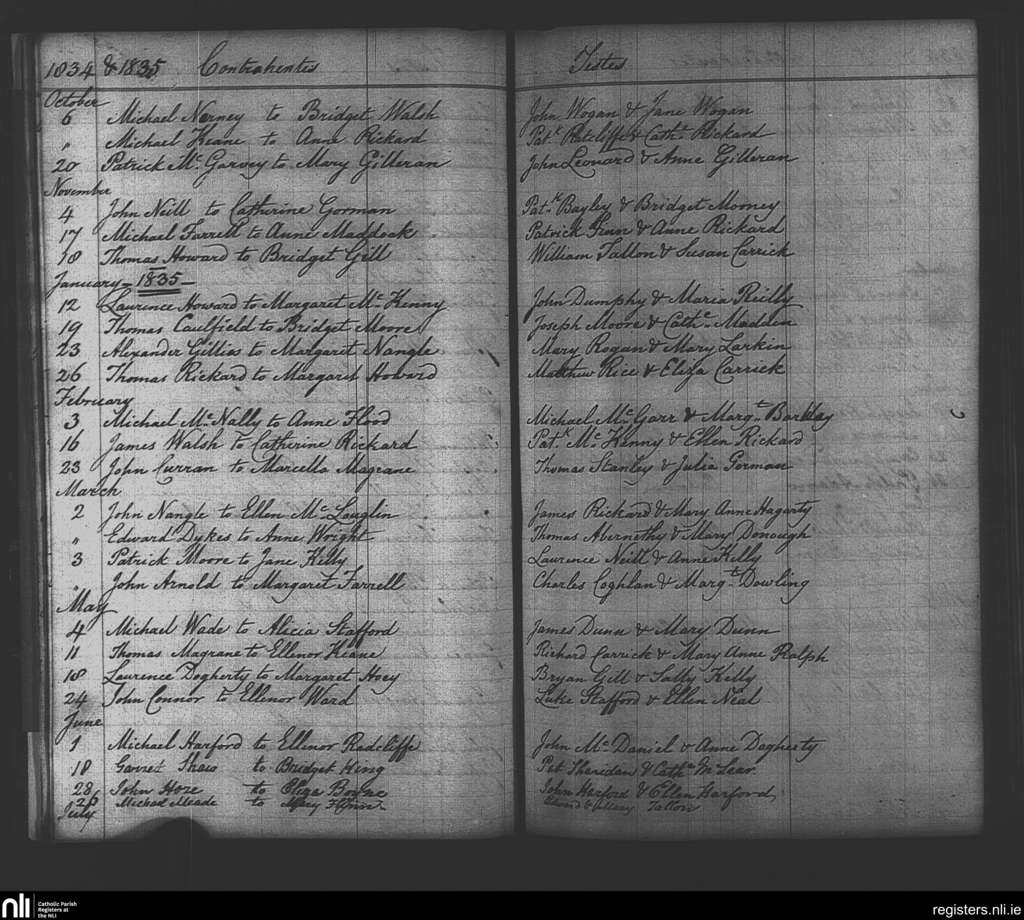 1834 & 1835 Contrahentes Testes
October
6 Michael Nerney to Bridget Walsh John Wogan & Jane Wogan
" Michael Keane to Anne Rickard Patk. Ratcliffe & Cathe. Rickard
20 Patrick Mc. Garvey to Mary Gilleran John Leonard & Anne Gilleran
November
4 John Neill to Catherine Gorman Patk. Bayley & Bridget Morney
17 Michael Farrell to Anne Maddock Patrick Finn & Anne Rickard
18 Thomas Howard to Bridget Gill William Tallon & Susan Carrick
January - 1835 -
12 Laurence Howard to Margaret Mc. Kenny John Dumphy & Maria Reilly
19 Thomas Caulfield to Bridget Moore Joseph Moore & Cathe. Madden
23 Alexander Gillias to Margaret Nangle Mary Rogan & Mary Larkin
26 Thomas Rickard to Margaret Howard Matthew Rice & Eliza Carrick
February
3 Michael Mc. Nally to Anne Flood Michael Mc. Garr & Margt. Barklay
16 James Walsh to Catherine Rickard Patk. Mc. Kenny & Ellen Rickard
23 John Curran to Marcella Magrane Thomas Stanley & Julia Gorman
March
2 John Nangle to Ellen Mc. Lauglin James Rickard & Mary Anne Hagarty
" Edward Dykes to Anne Wright Thomas Abernethy & Mary Donough
3 Patrick Moore to Jane Kelly Laurence Neill & Anne Kelly
" John Arnold to Margaret Farrell Charles Coghlan & Margt. Dowling
May
4 Michael Wade to Alicia Stafford James Dunn & Mary Dunn
11 Thomas Magrane to Ellenor Keane Richard Carrick & Mary Anne Ralph
18 Laurence Dogherty to Margaret Hoey Bryan Gill & Sally Kelly
24 John Connor to Ellenor Ward Luke Stafford & Ellen Neal
June
1 Michael Harford to Ellenor Radcliffe John Mc. Daniel & Anne Dogherty
18 Garret Shaw to Bridget King Pat Sheridan & Cathe
28 John Hoze to Eliza John Harford & Ellen Harford
28 Michael Meade to Mary Edward & Mary Tallon
July
nli Catholic Parish
Registers at
the NLI
registers.nli.ie